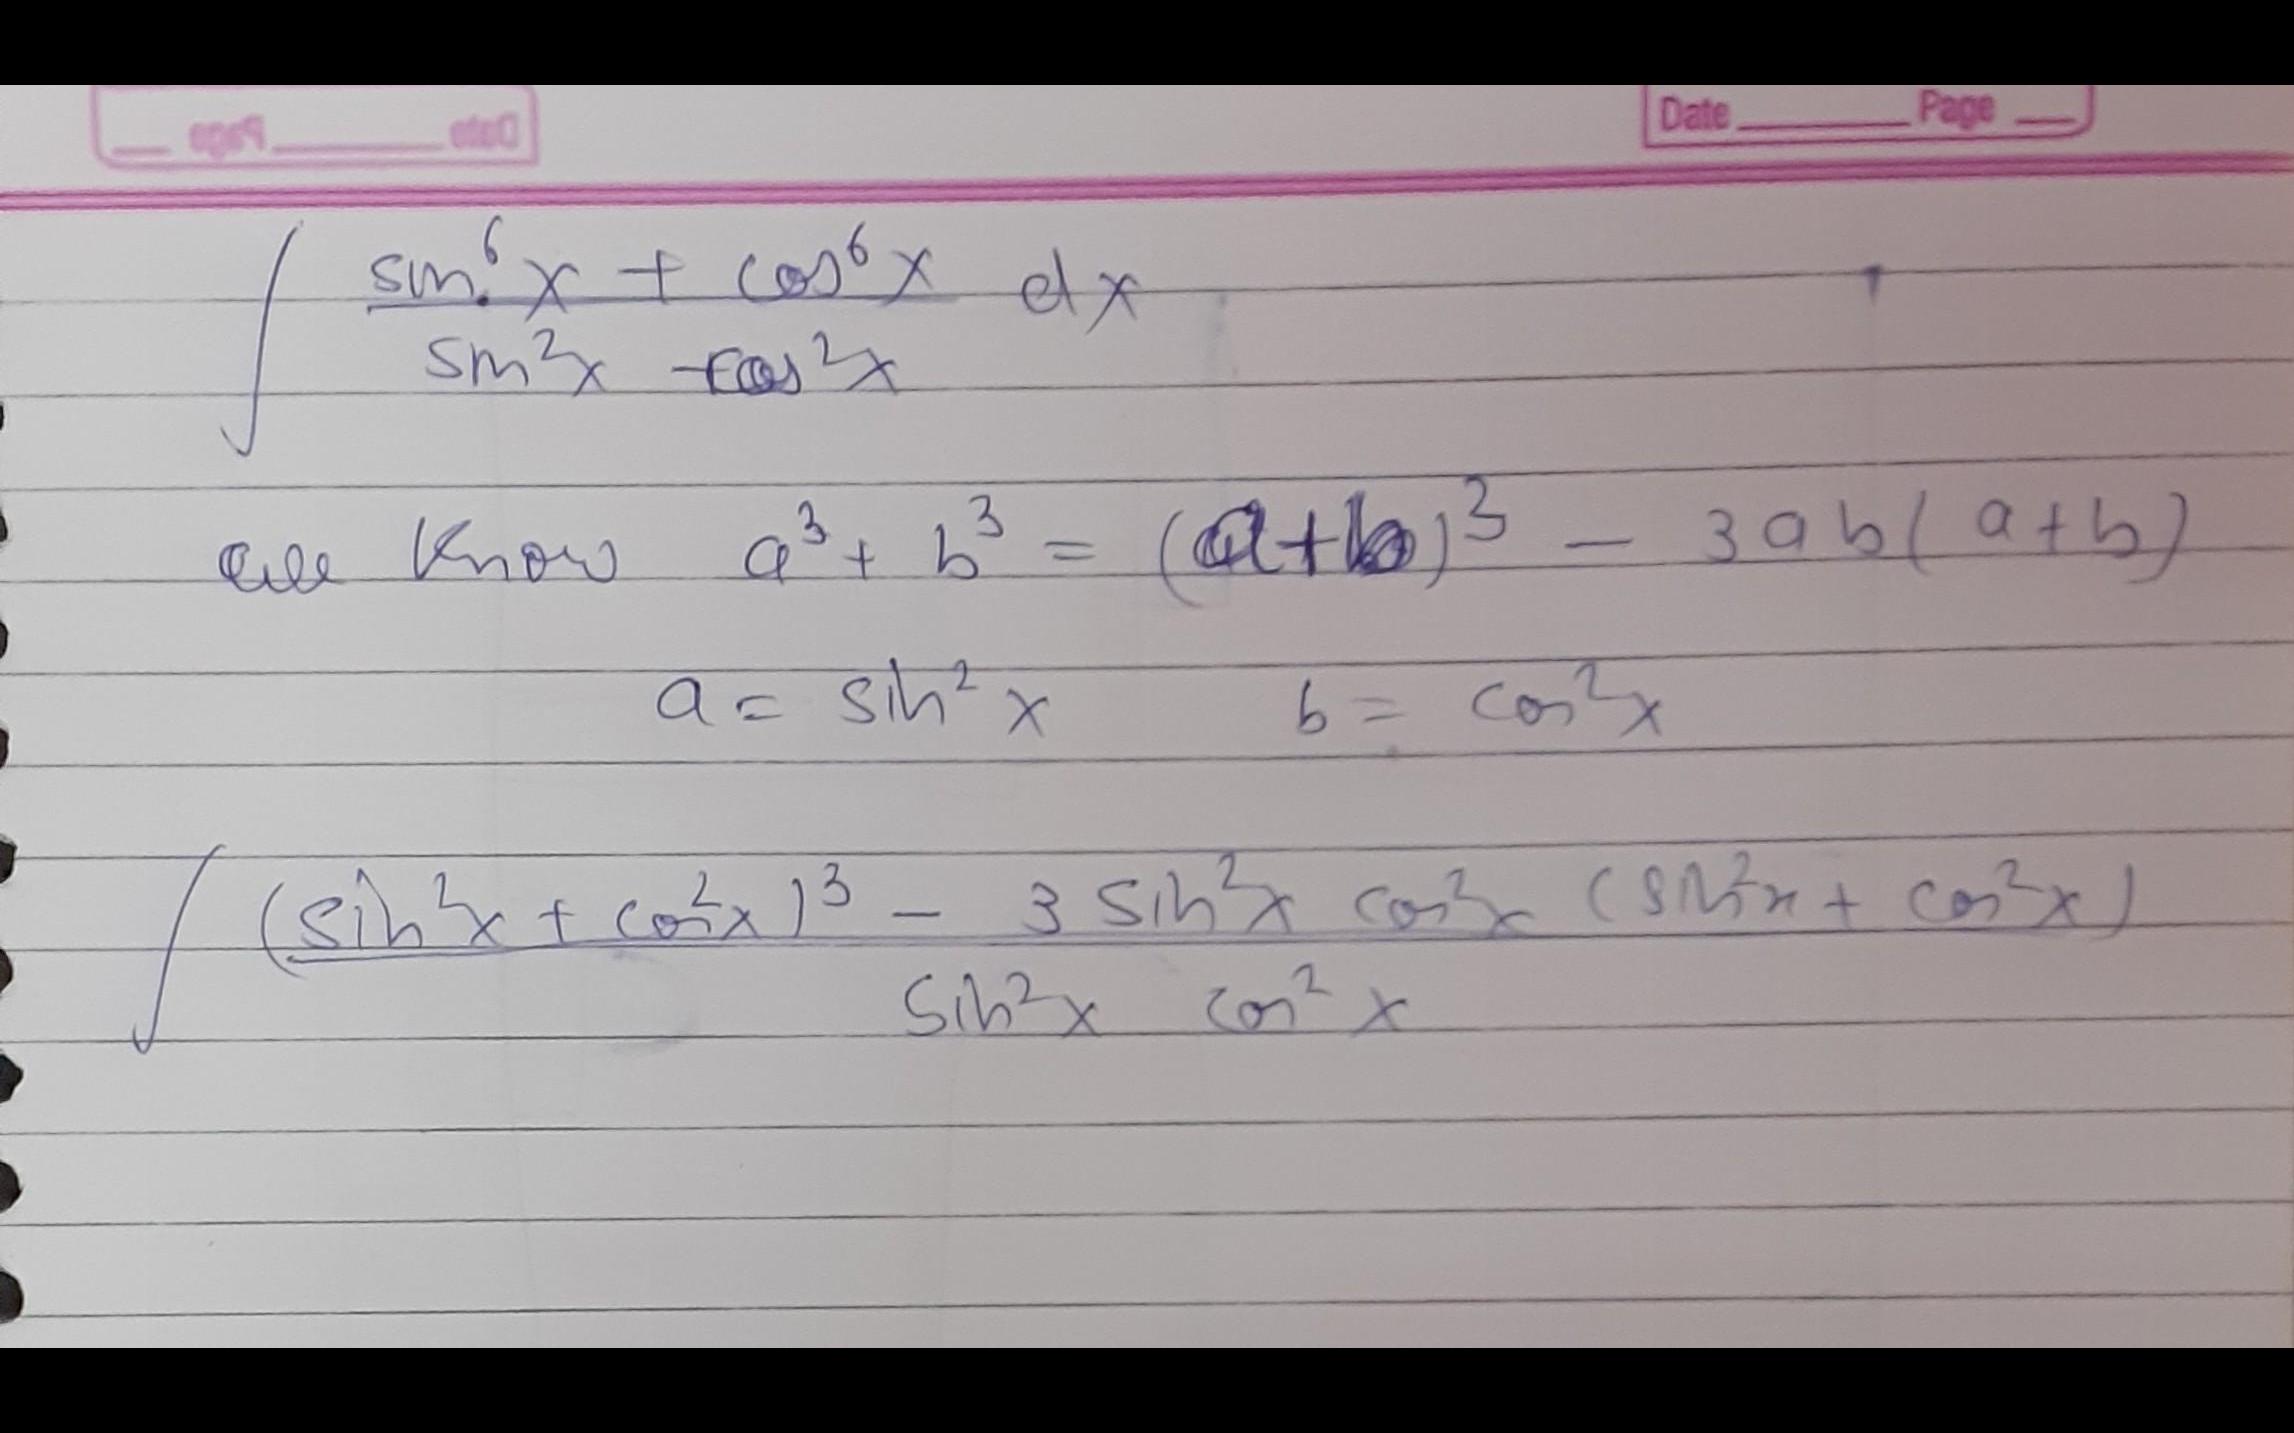 Date Page
∫ (sin⁶x + cos⁶x)/(sin²x cos²x) dx
we know a³ + b³ = (a+b)³ − 3ab(a+b)
a = sin²x b = cos²x
∫ ((sin²x + cos²x)³ − 3 sin²x cos²x (sin²x + cos²x))/(sin²x cos²x)